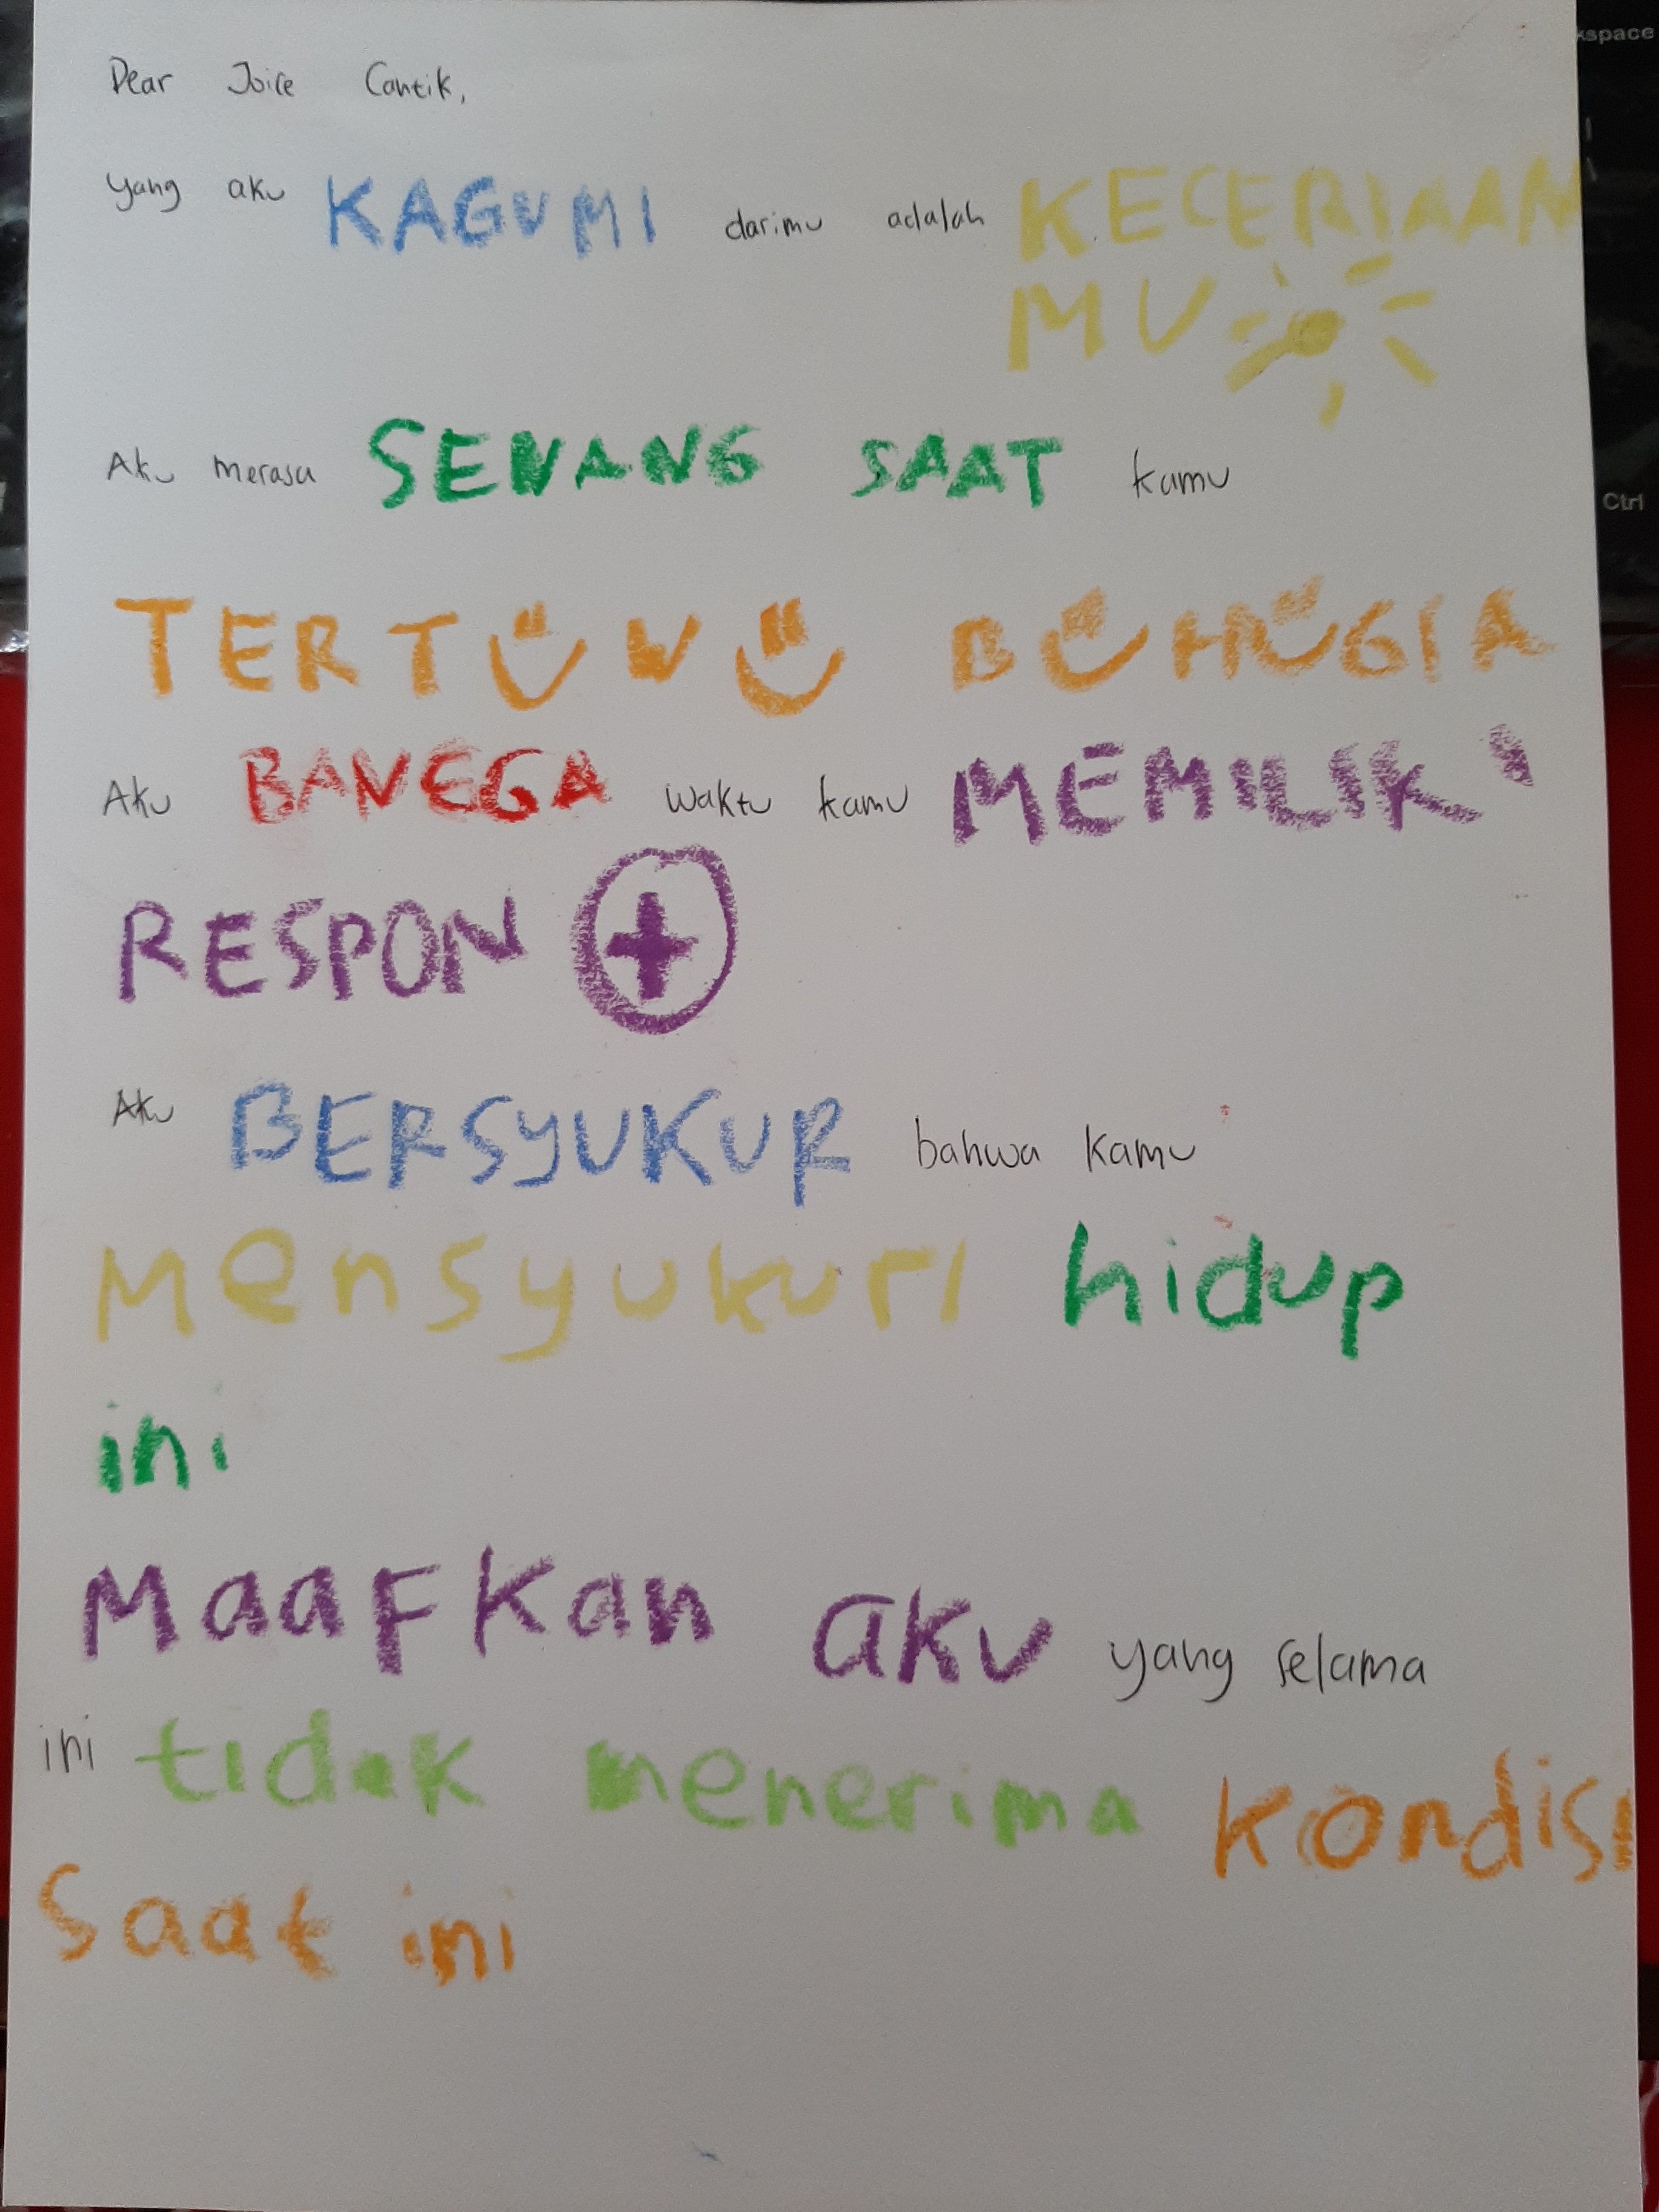 Dear Joice Cantik,
yang aku KAGUMI darimu adalah KECERIAAN
MU
Aku merasa SENANG SAAT kamu
TERTAWA BAHAGIA
Aku BANGGA waktu kamu MEMILIKI
RESPON +
Aku BERSYUKUR bahwa kamu
Mensyukuri hidup
ini
Maafkan aku yang selama
ini tidak menerima kondisi
Saat ini
kspace
Ctrl